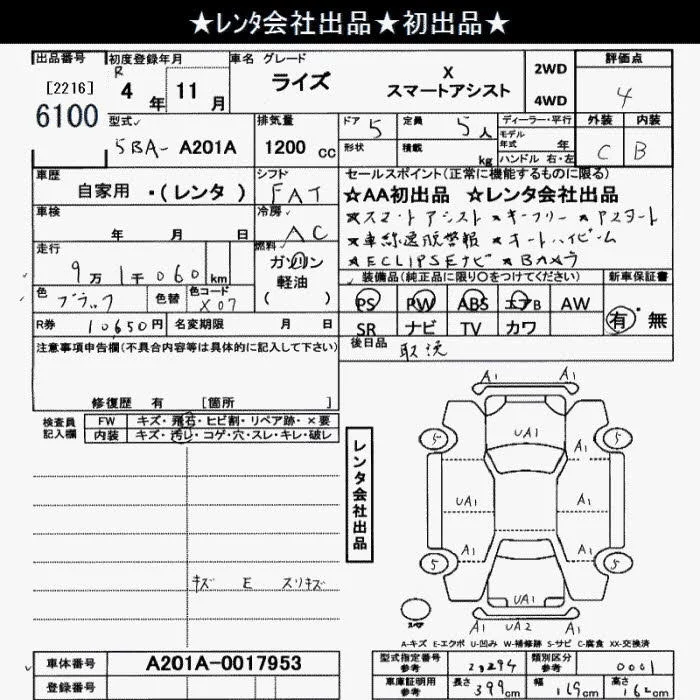 ★レンタ会社出品★初出品★
出品番号 初度登録年月 車名 グレード 評価点
[2216] R 4 年 11 月 ライズ X スマートアシスト 2WD 4WD 4
6100
型式 排気量 ドア 5 定員 5人 ディーラー・平行 外装 内装
5BA- A201A 1200 cc 形状 積載 kg モデル年式 年 ハンドル 右・左 C B
車歴 シフト セールスポイント(正常に機能するものに限る)
自家用 ・(レンタ) FAT ★AA初出品 ★レンタ会社出品
車検 冷房 ★スマートアシスト ★キーフリー ★Pスタート
年 月 日 AC ★車線逸脱警報 ★オートハイビーム
走行 燃料 ★ECLIPSEナビ ★Bカメラ
9万1千060km ガソリン 軽油 ( )
装備品(純正品に限り○をつけてください) 新車保証書
色 ブラック 色替 色コード X07 PS PW ABS エアB AW 有・無
R券 10650円 名変期限 月 日 SR ナビ TV カワ
注意事項申告欄(不具合内容等は具体的に記入して下さい) 後日品 取説
修復歴 有 [箇所 ]
検査員記入欄 FW キズ・飛石・ヒビ割・リペア跡・×要
内装 キズ・汚レ・コゲ・穴・スレ・キレ・破レ
レンタ会社出品
A1 A1
UA1
5 A1 5
UA1 A1 A1
A1 A1
5 5
キズ E スリキズ
UA1
A1 UA2 A1
スペア
A-キズ E-エクボ U-凹み W-補修跡 S-サビ C-腐食 XX-交換済
車体番号 A201A-0017953 型式指定番号 参考 20294 類別区分 参考 0001
登録番号 車庫証明用 参考 長さ 399cm 幅 169cm 高さ 162cm